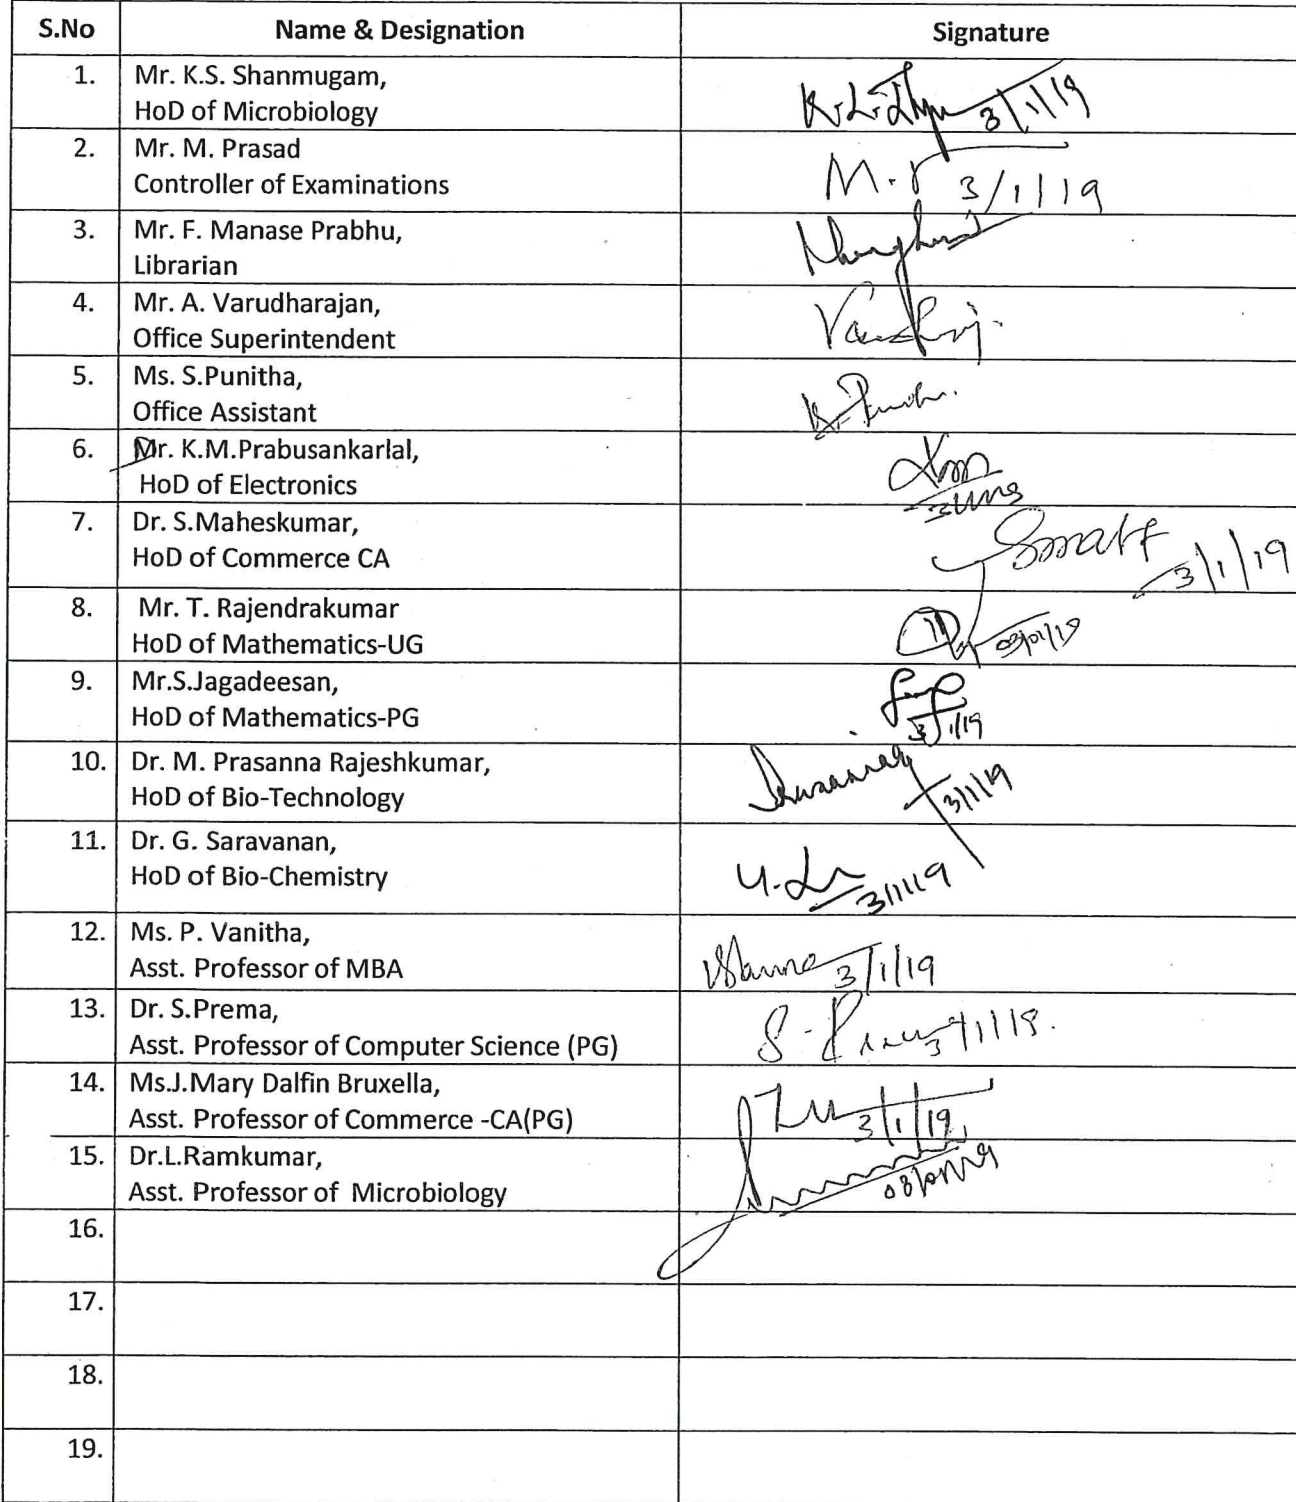 S.No Name & Designation Signature
1. Mr. K.S. Shanmugam,
HoD of Microbiology 3/1/19
2. Mr. M. Prasad
Controller of Examinations M. 3/1/19
3. Mr. F. Manase Prabhu,
Librarian
4. Mr. A. Varudharajan,
Office Superintendent
5. Ms. S.Punitha,
Office Assistant
6. Mr. K.M.Prabusankarlal,
HoD of Electronics
7. Dr. S.Maheskumar,
HoD of Commerce CA 3/1/19
8. Mr. T. Rajendrakumar
HoD of Mathematics-UG 03/01/19
9. Mr.S.Jagadeesan,
HoD of Mathematics-PG 3/1/19
10. Dr. M. Prasanna Rajeshkumar,
HoD of Bio-Technology 3/1/19
11. Dr. G. Saravanan,
HoD of Bio-Chemistry 3/1/19
12. Ms. P. Vanitha,
Asst. Professor of MBA 3/1/19
13. Dr. S.Prema,
Asst. Professor of Computer Science (PG) 3/1/19.
14. Ms.J.Mary Dalfin Bruxella,
Asst. Professor of Commerce -CA(PG) 3/1/19
15. Dr.L.Ramkumar,
Asst. Professor of Microbiology
16.
17.
18.
19.